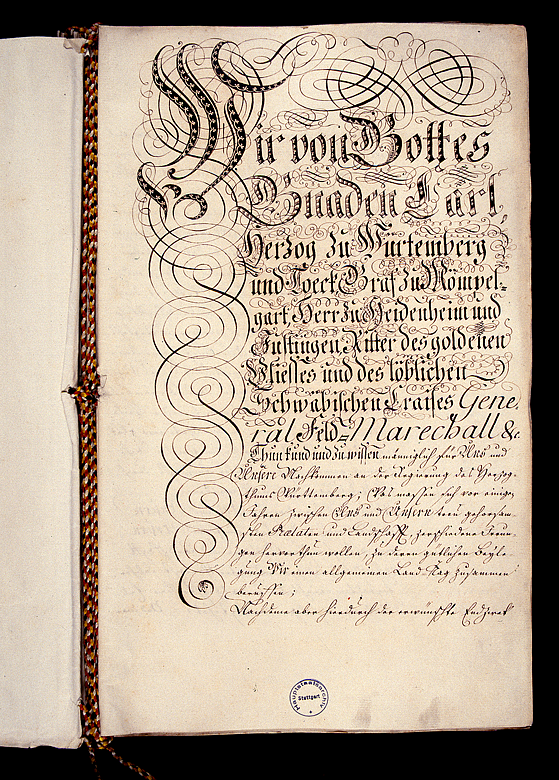 Wir von Gottes
Gnaden Carl,
Herzog zu Würtemberg
und Toeck Graf zu Mömpel-
gart Herr zu Heidenheim und
Justingen, Ritter des goldenen
Vliesses und des löblichen
Schwäbischen Craises Gene-
ral Feld-Marechall &c.
Thun kund und zu wissen männiglich für Uns und
Unsere Nachkommen an der Regierung des Herzog-
thums Württemberg; Was massen sich vor einigen
Jahren zwischen Uns und Unsern treu gehorsam-
sten Prälaten und Landschafft, verschiedene Irrun-
gen hervorthun wollen, zu deren gütlichen Beyle-
gung Wir einen allgemeinen Land-Tag zusammen
beruffen;
Nachdeme aber hierdurch der erwünschte Endzweck
Hauptstaatsarchiv
Stuttgart